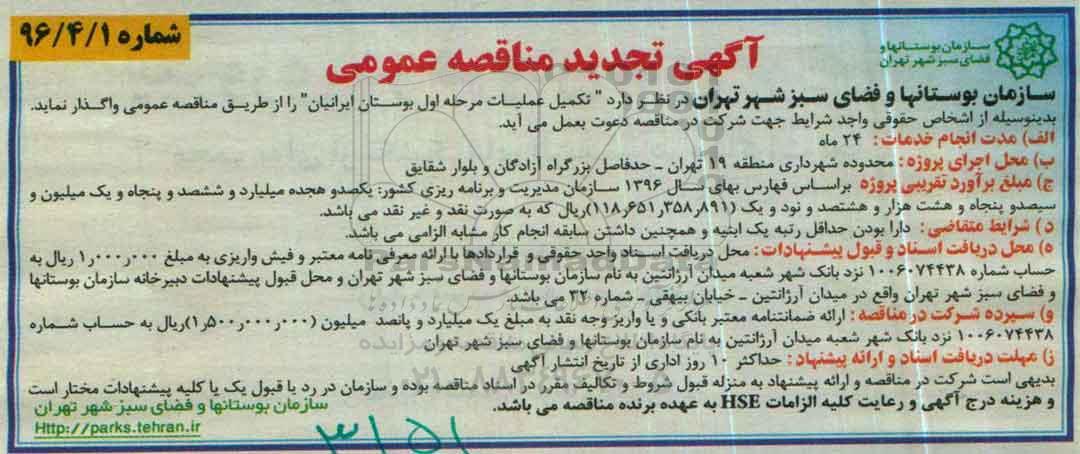 شماره ۹۶/۴/۱
سازمان بوستانها و
فضای سبز شهر تهران
آگهی تجدید مناقصه عمومی
سازمان بوستانها و فضای سبز شهر تهران در نظر دارد " تکمیل عملیات مرحله اول بوستان ایرانیان" را از طریق مناقصه عمومی واگذار نماید.
بدینوسیله از اشخاص حقوقی واجد شرایط جهت شرکت در مناقصه دعوت بعمل می آید.
الف) مدت انجام خدمات: ۲۴ ماه
ب) محل اجرای پروژه: محدوده شهرداری منطقه ۱۹ تهران ـ حدفاصل بزرگراه آزادگان و بلوار شقایق
ج) مبلغ برآورد تقریبی پروژه براساس فهارس بهای سال ۱۳۹۶ سازمان مدیریت و برنامه ریزی کشور: یکصدو هجده میلیارد و ششصد و پنجاه و یک میلیون و
سیصدو پنجاه و هشت هزار و هشتصد و نود و یک (۱۱۸٫۶۵۱٫۳۵۸٫۸۹۱)ریال که به صورت نقد و غیر نقد می باشد.
د) شرایط متقاضی: دارا بودن حداقل رتبه یک ابنیه و همچنین داشتن سابقه انجام کار مشابه الزامی می باشد.
ه) محل دریافت اسناد و قبول پیشنهادات: محل دریافت اسناد واحد حقوقی و قراردادها با ارائه معرفی نامه معتبر و فیش واریزی به مبلغ ۱٫۰۰۰٫۰۰۰ ریال به
حساب شماره ۱۰۰۶۰۷۴۴۳۸ نزد بانک شهر شعبه میدان آرژانتین به نام سازمان بوستانها و فضای سبز شهر تهران و محل قبول پیشنهادات دبیرخانه سازمان بوستانها
و فضای سبز شهر تهران واقع در میدان آرژانتین ـ خیابان بیهقی ـ شماره ۳۲ می باشد.
و) سپرده شرکت در مناقصه: ارائه ضمانتنامه معتبر بانکی و یا واریز وجه نقد به مبلغ یک میلیارد و پانصد میلیون (۱٫۵۰۰٫۰۰۰٫۰۰۰)ریال به حساب شماره
۱۰۰۶۰۷۴۴۳۸ نزد بانک شهر شعبه میدان آرژانتین به نام سازمان بوستانها و فضای سبز شهر تهران
ز) مهلت دریافت اسناد و ارائه پیشنهاد: حداکثر ۱۰ روز اداری از تاریخ انتشار آگهی
بدیهی است شرکت در مناقصه و ارائه پیشنهاد به منزله قبول شروط و تکالیف مقرر در اسناد مناقصه بوده و سازمان در رد یا قبول یک یا کلیه پیشنهادات مختار است
و هزینه درج آگهی و رعایت کلیه الزامات HSE به عهده برنده مناقصه می باشد.
سازمان بوستانها و فضای سبز شهر تهران
Http://parks.tehran.ir
۳۱۵۱